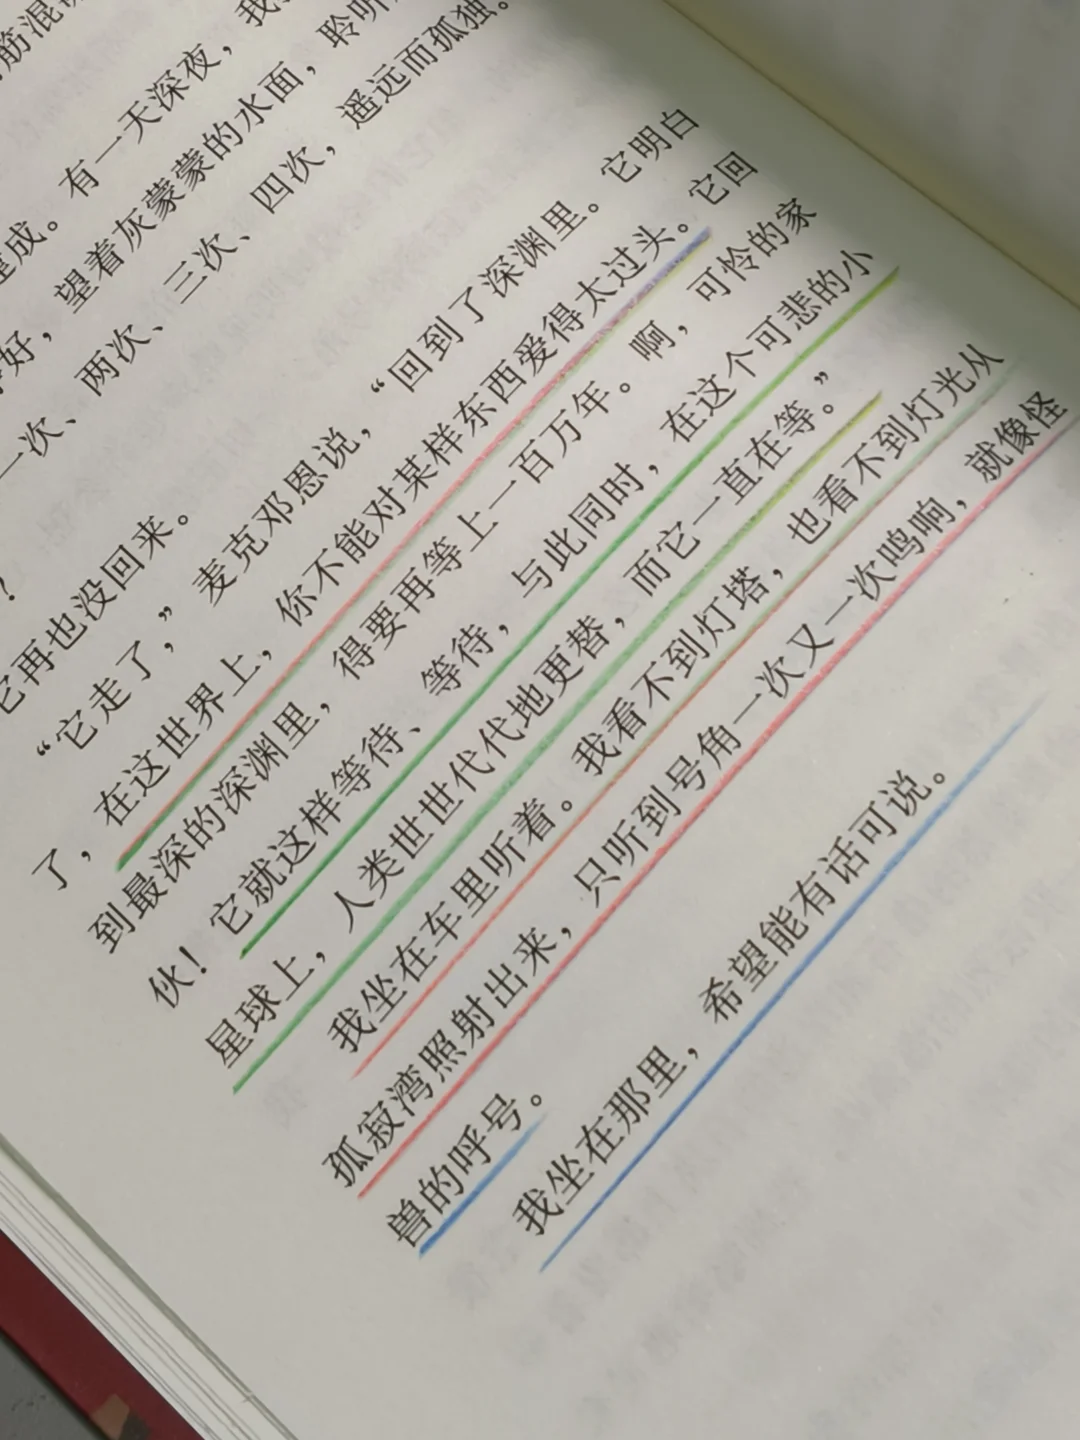 筋混
成。有一天深夜，我
好，望着灰蒙蒙的水面，聆听
一次、两次、三次、四次，遥远而孤独。
！
它再也没回来。
“它走了，”麦克邓恩说，“回到了深渊里。它明白
了，在这世界上，你不能对某样东西爱得太过头。它回
到最深的深渊里，得要再等上一百万年。啊，可怜的家
伙！它就这样等待、等待，与此同时，在这个可悲的小
星球上，人类世世代代地更替，而它一直在等。”
我坐在车里听着。我看不到灯塔，也看不到灯光从
孤寂湾照射出来，只听到号角一次又一次鸣响，就像怪
兽的呼号。
我坐在那里，希望能有话可说。